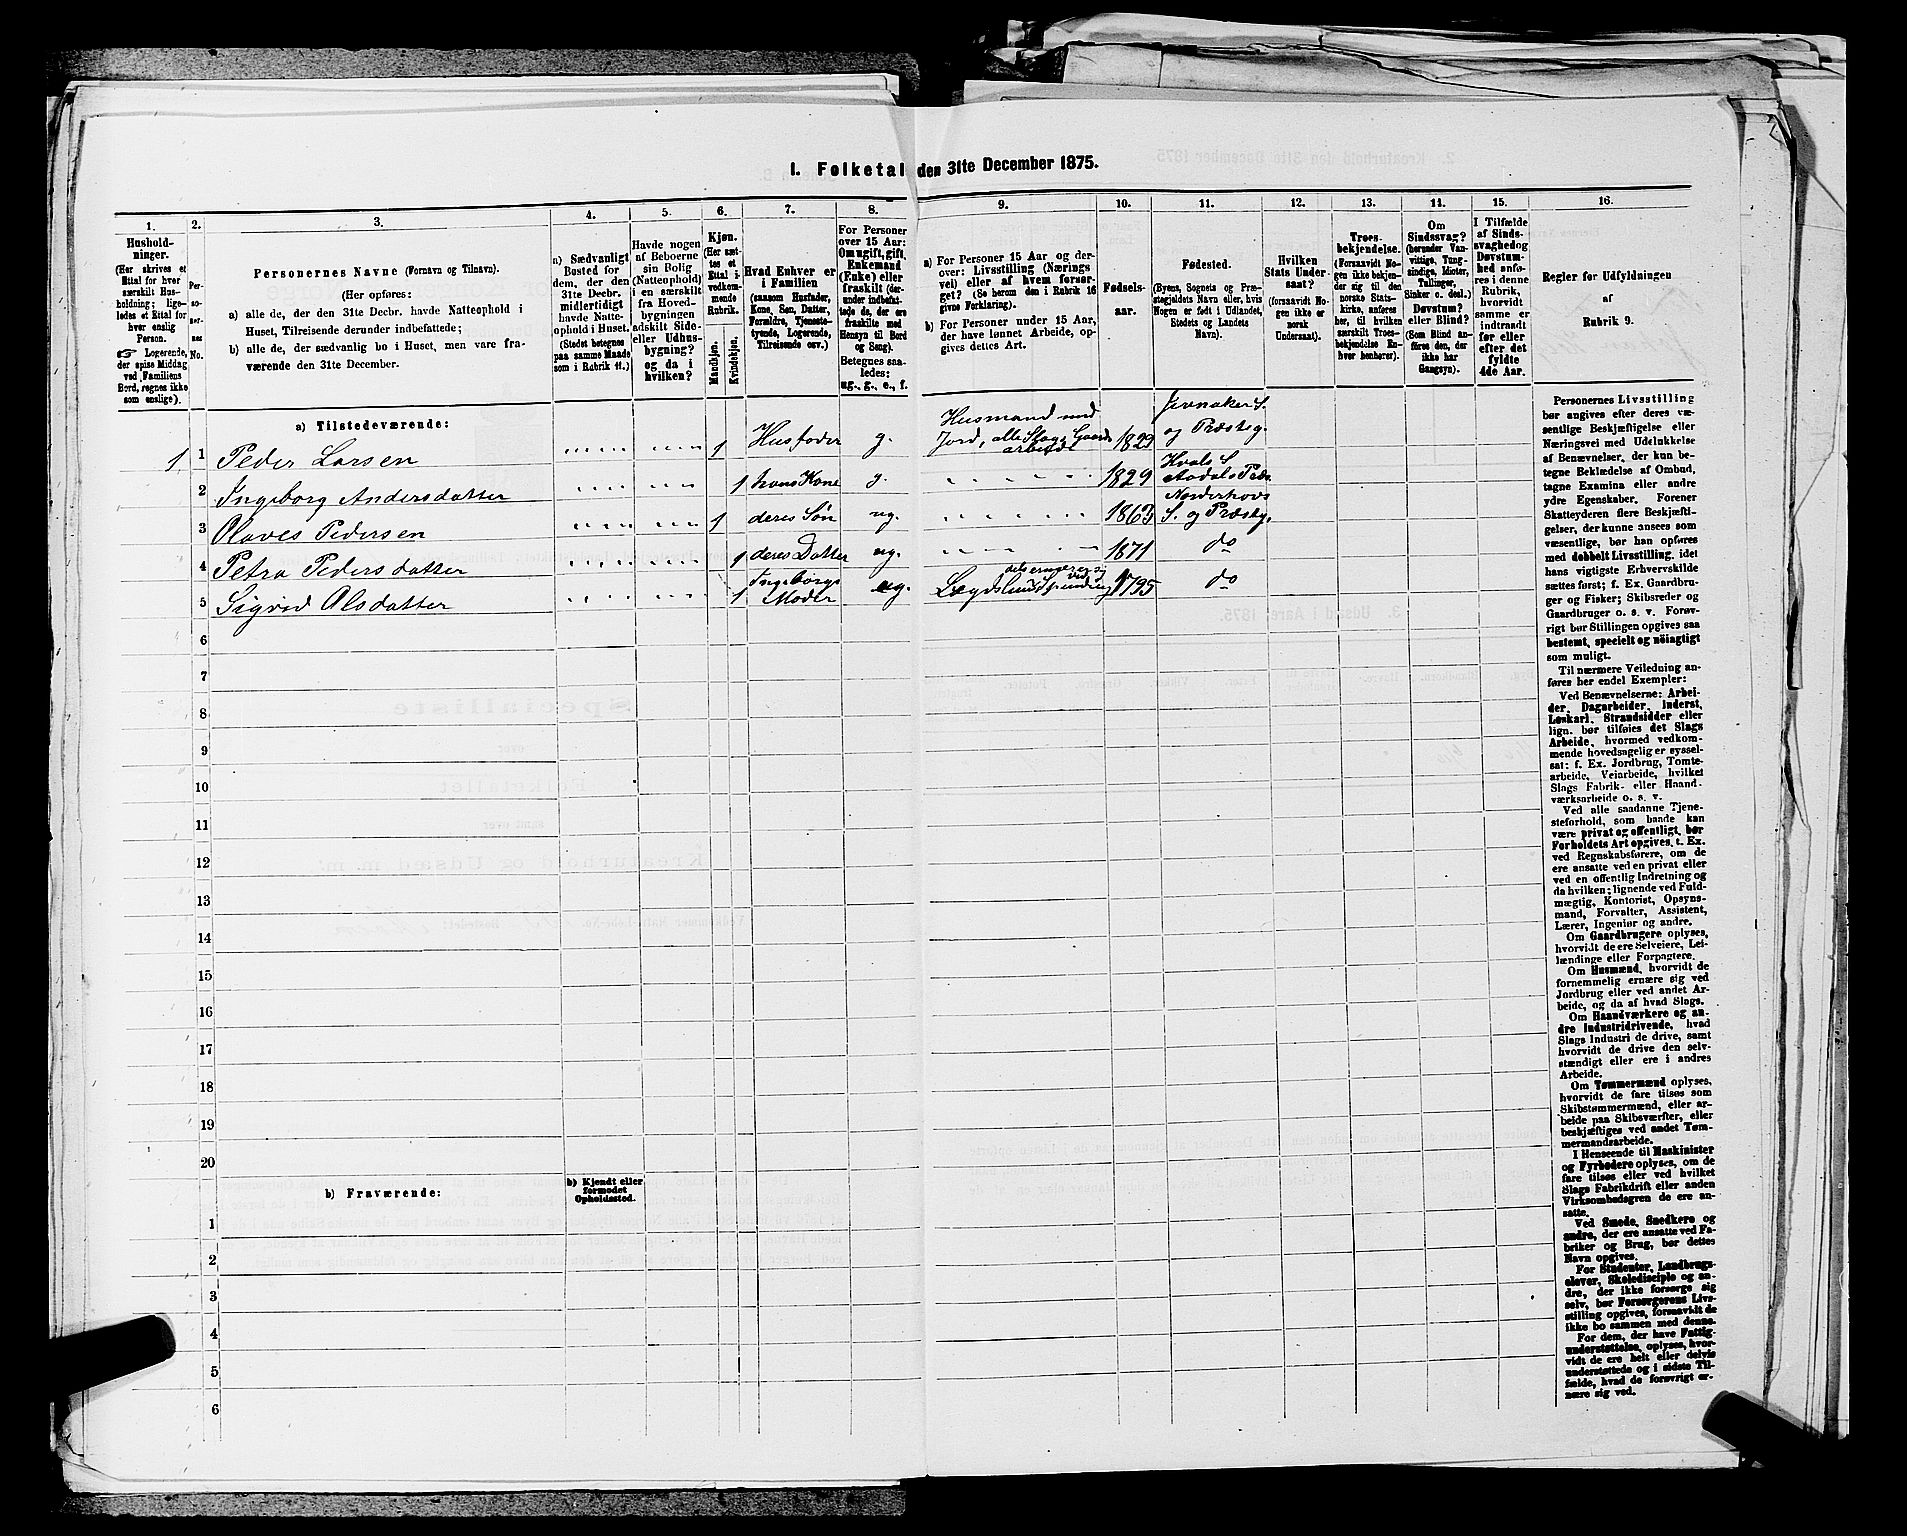 I. Folketal den 31te December 1875.
1.
2.
3.
4.
5.
6.
7.
8.
9.
10.
11.
12.
13.
14.
15.
16.
Hushold-
ninger.
(Her skrives et
Ettal for hver
særskilt Hus-
holdning; lige-
ledes et Ettal for
hver enslig
Person.
☞ Logerende,
der spise Middag
ved Familiens
Bord, regnes ikke
som enslige).
Per-
so-
ner-
nes
No.
Personernes Navne (Fornavn og Tilnavn).
(Her opføres:
a) alle de, der den 31te Decbr. havde Natteophold i
Huset, Tilreisende derunder indbefattede;
b) alle de, der sædvanlig bo i Huset, men vare fra-
værende den 31te December.
a) Sædvanligt
Bosted for
dem, der den
31te Decbr.
midlertidigt
havde Natte-
ophold i Huset.
(Stedet betegnes
paa samme Maade
som i Rubrik 11.)
Havde nogen
af Beboerne
sin Bolig
(Natteophold)
i en særskilt
fra Hoved-
bygningen
adskilt Side-
eller Udhus-
bygning?
og da i
hvilken?
Kjøn.
(Her sæt-
tes et
Ettal i
vedkom-
mende
Rubrik.
Mandkjøn.
Kvindekjøn.
Hvad Enhver er
i Familien
(saasom Husfader,
Kone, Søn, Datter,
Forældre, Tjeneste-
tyende, Logerende,
Tilreisende osv.)
For Personer
over 15 Aar:
Om ugift, gift,
Enkemand
(Enke) eller
fraskilt (der-
under indbefat-
tede de, der ere
fraskilte med
Hensyn til Bord
og Seng).
Betegnes saa-
ledes:
ug., g., e., f.
a) For Personer 15 Aar og der-
over: Livsstilling (Nærings-
vei) eller af hvem forsør-
get? (Se herom den i Rubrik 16
givne Forklaring).
b) For Personer under 15 Aar,
der have lønnet Arbeide, op-
gives dettes Art.
Fødsels-
aar.
Fødested.
(Byens, Sognets og Præ-
stegjeldets Navn eller, hvis
Nogen er født i Udlandet,
Stedets og Landets
Navn).
Hvilken
Stats Under-
saat?
(forsaavidt No-
gen ikke er
norsk
Undersaat).
Troes-
bekjendelse.
(Forsaavidt No-
gen ikke bekjen-
der sig til den
norske Stats-
kirke, anføres
her, til hvilken
særskilt Troes-
bekjendelse En-
hver henhører).
Om
Sindssvag?
(herunder Van-
vittige, Tung-
sindige, Mioter,
Tullinger,
Sinker o. desl.)
Døvstum?
eller Blind?
(Som Blind an-
føres den, der
ikke har
Gangsyn).
I Tilfælde
af Sinds-
svaghed og
Døvstum-
hed anfø-
res i denne
Rubrik,
hvorvidt
samme er
indtraadt
før eller
efter det
fyldte
4de Aar.
Regler for Udfyldningen
af
Rubrik 9.
a) Tilstedeværende:
1 1 Peder Larsen 1 Husfader g. Husmand med Jord, alle Slags Gaards arbeide 1829 Jevnaker S. og Præsteg.
2 Ingeborg Andersdatter 1 hans Kone g. 1829 Hvals S Aadals Præs.
3 Olaves Pedersen 1 deres Søn ug. 1863 Norderhovs S. og Præsteg.
4 Petra Pedersdatter 1 deres Datter ug. 1871 do
5 Sigrid Olsdatter 1 Ingeborgs Moder ug. 1795 do
6
7
8
9
10
11
12
13
14
15
16
17
18
19
20
b) Fraværende:
b) Kjendt eller
formodet
Opholdssted.
1
2
3
4
5
6
Personernes Livsstilling
bør angives efter deres væ-
sentlige Beskjæftigelse eller
Næringsvei med Udelukkelse
af Benævnelser, der kun be-
tegne Beklædelse af Ombud,
tagne Examina eller andre
ydre Egenskaber. Forener
Skatteyderen flere Beskjæfti-
gelser, der kunne ansees som
væsentlige, bør han opføres
med dobbelt Livsstilling, idet
hans vigtigste Erhvervskilde
sættes først; f. Ex. Gaardbru-
ger og Fisker; Skibsreder og
Gaardbruger o. s. v. Forøv-
rigt bør Stillingen opgives saa
bestemt, specielt og nöiagtigt
som muligt.
Til nærmere Veiledning an-
føres her endel Exempler:
Ved Benævnelserne: Arbei-
der, Dagarbeider, Inderst,
Løskarl, Strandsidder eller
lign. bør tilføies det Slags
Arbeide, hvormed vedkom-
mende hovedsagelig er syssel-
sat: f. Ex. Jordbrug, Tomte-
arbeide, Veiarbeide, hvilket
Slags Fabrik- eller Haand-
værksarbeide o. s. v.
Ved alle saadanne Tjene-
steforhold, som baade kan
være privat og offentligt, bør
Forholdets Art opgives, f. Ex.
ved Regnskabsførere, om de
ere ansatte ved en privat eller
ved en offentlig Indretning og
da hvilken; lignende ved Fuld-
mægtig, Kontorist, Opsyns-
mand, Forvalter, Assistent,
Lærer, Ingeniør og andre.
Om Gaardbrugere oplyses,
hvorvidt de ere Selveiere, Lei-
lændinge eller Forpagtere.
Om Husmænd, hvorvidt de
fornemmelig ernære sig ved
Jordbrug eller ved andet Ar-
beide, og da af hvad Slags.
Om Haandværkere og an-
dre Industridrivende, hvad
Slags Industri de drive, samt
hvorvidt de drive den selv-
stændigt eller ere i andres
Arbeide.
Om Tømmermænd oplyses,
hvorvidt de fare tilsøs som
Skibstømmermænd, eller ar-
beide paa Skibsværfter, eller
beskjæftiges ved andet Tøm-
mermandsarbeide.
I Henseende til Maskinister
og Fyrbødere oplyses, om de
fare tilsøs eller ved hvilket
Slags Fabrikdrift eller anden
Virksomhedsgren de ere an-
satte.
Ved Smede, Snedkere og
andre, der ere ansatte ved Fa-
briker og Brug, bør dettes
Navn opgives.
For Studenter, Landbrugs-
elever, Skoledisciple og an-
dre, der ikke forsørge sig
selv, bør Forsørgerens Livs-
stilling opgives, forsaavidt de
ikke bo sammen med denne.
For dem, der have Fattig-
understøttelse, oplyses, hvor-
vidt de ere helt eller delvis
understøttede og i sidste Til-
fælde, hvad de forøvrigt er-
nære sig ved.